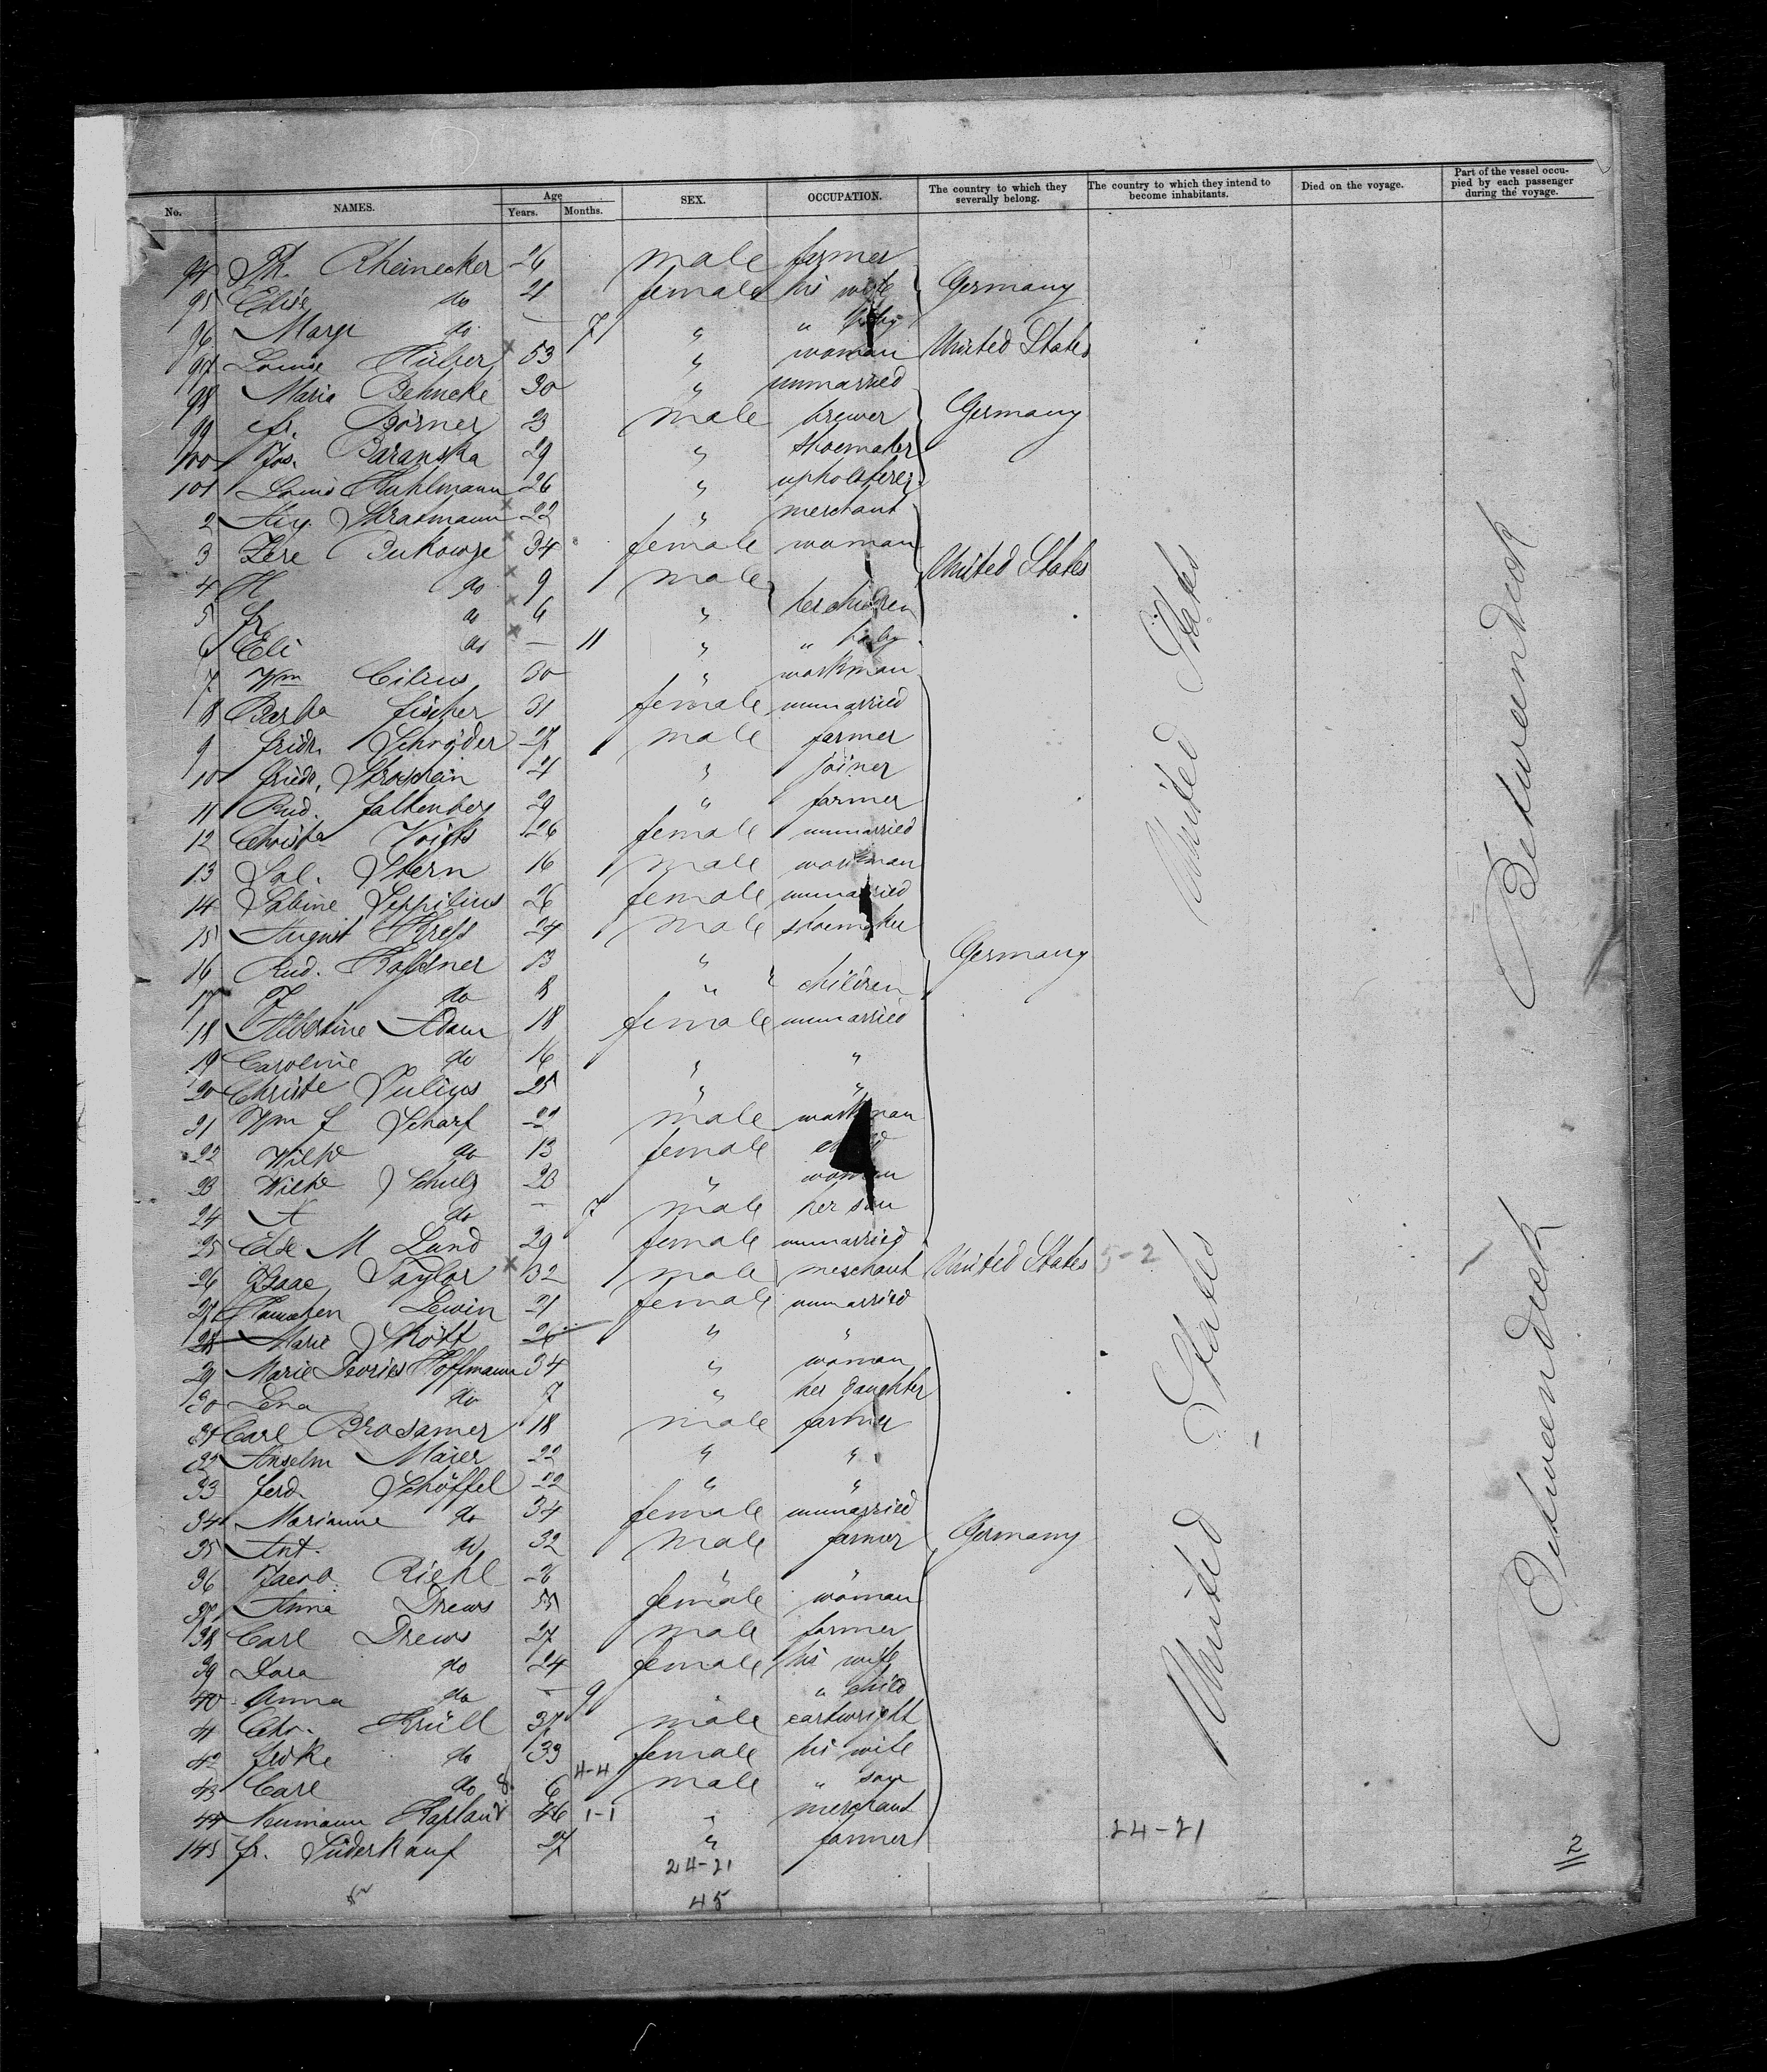 No. NAMES. Age Years. Months. SEX. OCCUPATION. The country to which they severally belong. The country to which they intend to become inhabitants. Died on the voyage. Part of the vessel occupied by each passenger during the voyage.
94 Th. Rheinecker 26 male farmer
95 Elise do 21 female his wife Germany
96 Marge do — 7 " " baby
97 Louise Hüber 53 " woman United States
98 Maria Behncke 30 " unmarried
99 Fr. Börner 23 male brewer Germany
100 Jos. Baranska 29 " shoemaker
101 Louis Kuhlmann 26 " upholsterer
2 Aug. Stratmann 22 " merchant
3 Zere Bukowze 34 female woman
4 H do 9 male United States
5 L do 6 " her children
6 Eli do — 11 " " baby
7 Wm Cilius 30 " workman
8 Barba Fischer 31 female unmarried
9 Fridr. Schröder 27 male farmer
10 Friedr. Stroschein 21 " joiner
11 Rud. Falkenberg 29 " farmer
12 Christa Voights 26 female unmarried
13 Sal. Stern 16 male workman
14 Sabine Seppilius 26 female unmarried
15 August Kress 24 male shoemaker
16 Rud. Kassner 13 " Germany
17 J do 8 " children
18 Albertine Adam 18 female unmarried
19 Caroline do 16 " "
20 Christe Julius 25 " "
21 Wm F Scharf 22 male workman
22 Wilhe do 13 female child
23 Wilhe Schulz 23 " woman
24 A do — 7 male her son
25 Else M Lund 29 female unmarried
26 Isaac Taylor 32 male merchant United States 5-2
27 Hannchen Lewin 21 female unmarried
28 Marie Skött 26 " "
29 Marie Devries Hoffmann 34 " woman
30 Lena do 7 " her daughter
31 Carl Brosamer 18 male farmer
32 Anselm Maier 22 " "
33 Ferd. Schöffel 22 " "
34 Marianne do 34 female unmarried
35 Ant. do 32 male farmer Germany
36 Jacob Riehl 26 " "
37 Anna Drews 55 female woman
38 Carl Drews 27 male farmer
39 Dora do 24 female his wife
40 Anna do — 9 " " child
41 Chr. Krüll 37 male cartwright
42 Fridke do 33 female his wife
43 Carl do 8 6 4-4 male " son
44 Neumann Kaplan 46 1-1 " merchant
145 Fr. Süderkauf 27 " farmer 24-21
24-21
45
United States
United States
Between deck
Between deck
2